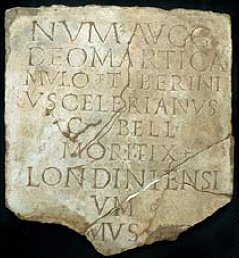 NVM·AVGG
DEOMARTICA
MVLO·TIBERINI
VSCELERIANVS
C·BELL
MORITIX
LONDINIENSI
VM
MVS